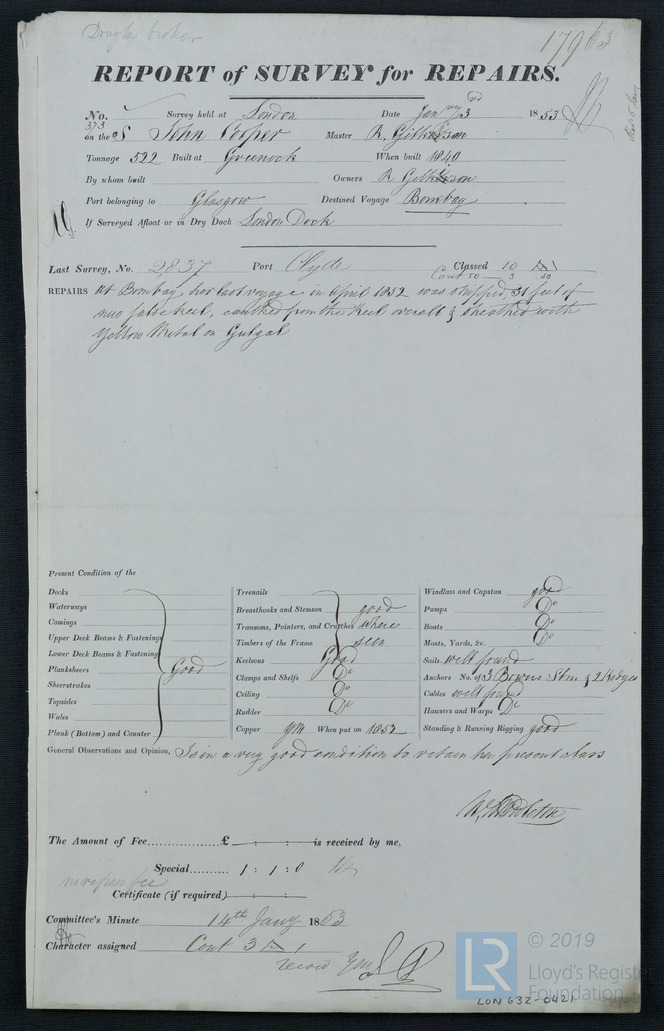 17963
REPORT of SURVEY for REPAIRS.
No. 373 Survey held at London Date Jany 3rd 1853
on the S John Cooper Master R. Gilkison
Tonnage 522 Built at Greenock When built 1840
By whom built Owners R Gilkison
Port belonging to Glasgow Destined Voyage Bombay
If Surveyed Afloat or in Dry Dock London Dock
Last Survey, No. 2837 Port Clyde Classed 10 A1
Cont 50 - 3 50
REPAIRS At Bombay her last voyage in April 1852 was stripped, 31 feet of
new false keel, caulked from the keel overall & sheathed with
Yellow Metal on
Present Condition of the
Decks
Waterways
Comings
Upper Deck Beams & Fastenings
Lower Deck Beams & Fastening
Planksheers Good
Sheerstrakes
Topsides
Wales
Plank (Bottom) and Counter
Treenails
Breasthooks and Stemson good
Transoms, Pointers, and Crutches where
Timbers of the Frame seen
Keelsons Good
Clamps and Shelfs Do
Ceiling Do
Rudder Do
Copper YM When put on 1852
Windlass and Capstan good
Pumps Do
Boats Do
Masts, Yards, &c. Do
Sails well found
Anchors No. of 3 Bowers Stm & 2 Kedges
Cables well found
Hawsers and Warps Do
Standing & Running Rigging good
General Observations and Opinion, Is in a very good condition to retain her present class
The Amount of Fee £ : : is received by me,
Special 1 : 1 : 0
no repen fee
Certificate (if required) : :
Committee's Minute 14th Jany 1853
Character assigned Cont 3 A 1
record YM
LR © 2019
Lloyd's Register
Foundation
LON 632-0421